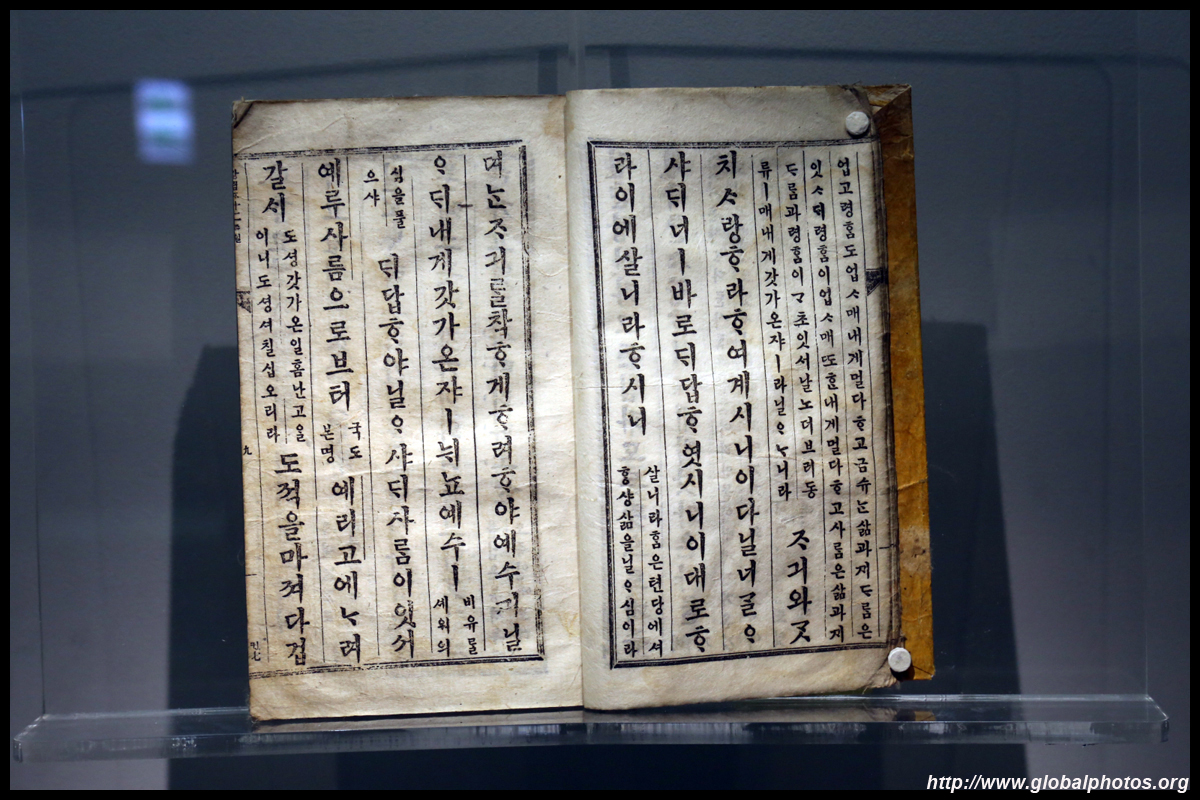 업고령혼도업ᄉᆞ매내게멀다ᄒᆞ고금슈ᄂᆞᆫ삶과ᄭᆡᄃᆞᄅᆞᆷ은
잇ᄉᆞᄃᆡ령혼이업ᄉᆞ매ᄯᅩᄒᆞᆫ내게멀다ᄒᆞ고사ᄅᆞᆷ은삶과ᄭᆡ
ᄃᆞᄅᆞᆷ과령혼이ᄀᆞ초잇서날노더브러동
류ㅣ매내게갓가온쟈ㅣ라닐ᄋᆞᄂᆞ니라
ᄌᆞ긔와ᄀᆞᆺ
치ᄉᆞ랑ᄒᆞ라ᄒᆞ여계시니이다닐너ᄀᆞᆯᄋᆞ
샤ᄃᆡ너ㅣ바로ᄃᆡ답ᄒᆞ엿시니이대로ᄒᆞ
라이에살니라ᄒᆞ시니
살니라홈은텬당에셔
ᄒᆞᆼ샹삶을닐ᄋᆞ심이라
뎌ᄂᆞᆫᄌᆞ긔ᄅᆞᆯ착ᄒᆞ게ᄒᆞ려ᄒᆞ야예수ᄭᅴ닐
ᄋᆞᄃᆡ내게갓가온쟈ㅣ뉘뇨예수ㅣ
비유를
셰워의
심을풀
으샤
ᄃᆡ답ᄒᆞ야닐ᄋᆞ샤ᄃᆡ사ᄅᆞᆷ이잇서
예루사름으로브터
국도
본명
예리고에ᄂᆞ려
갈세
도셩갓가온일홈난고을
이니도셩셔칠십오리라
도적을마져다겁
九
http://www.globalphotos.org